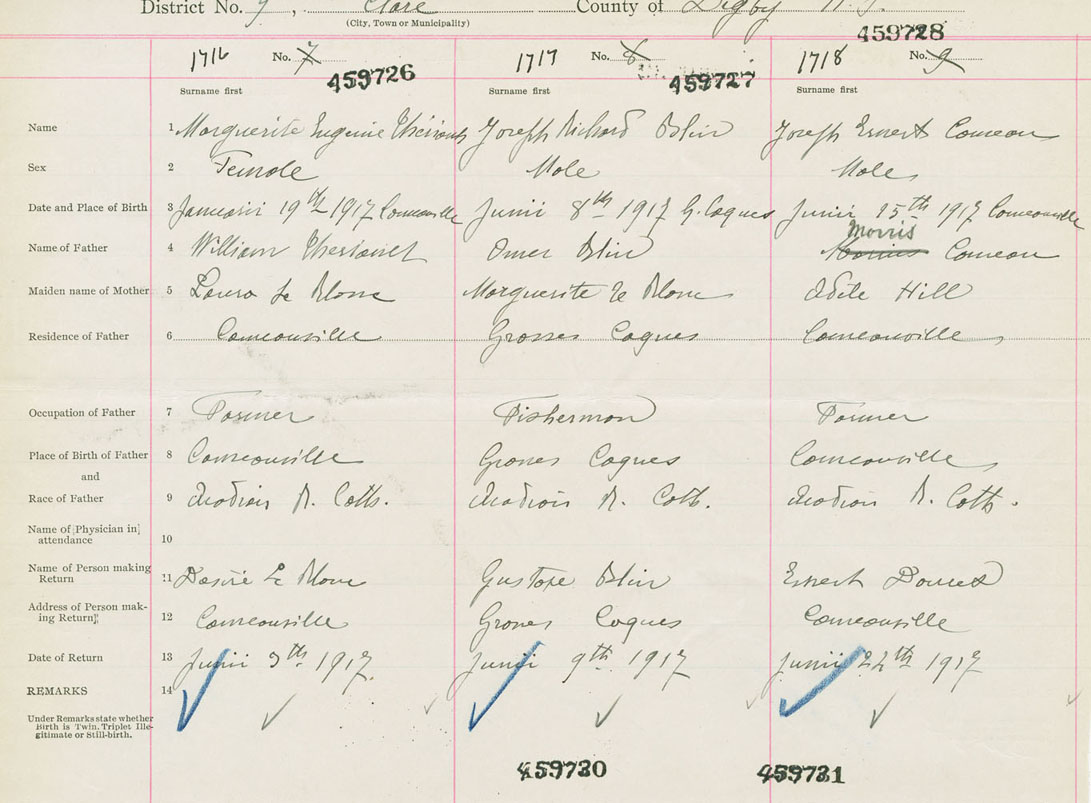 District No. 7, Clare County of Digby N.S.
(City, Town or Municipality)
459728
1716 No. 7 1717 No. 8 1718 No. 9
459726 459727
Surname first Surname first Surname first
Name 1 Marguerite Eugenie Theriault Joseph Richard Blin Joseph Ernest Comeau
Sex 2 Female Male Male
Date and Place of Birth 3 Januari 19th 1917 Comeauville Junii 8th 1917 G. Coques Junii 15th 1917 Comeauville
Morris
Name of Father 4 William Theriault Omer Blin Comeau
Maiden name of Mother 5 Laura Le Blanc Marguerite Le Blanc Odile Hill
Residence of Father 6 Comeauville Grosses Coques Comeauville
Occupation of Father 7 Farmer Fisherman Farmer
Place of Birth of Father 8 Comeauville Grosses Coques Comeauville
and
Race of Father 9 Acadian R. Cath. Acadian R. Cath. Acadian R. Cath.
Name of Physician in
attendance 10
Name of Person making
Return 11 Desire Le Blanc Gustave Blin Ernest Doucet
Address of Person mak-
ing Return 12 Comeauville Grosses Coques Comeauville
Date of Return 13 Junii 9th 1917 Junii 9th 1917 Junii 22th 1917
REMARKS 14
Under Remarks state whether
Birth is Twin, Triplet Ille-
gitimate or Still-birth.
459730 459731